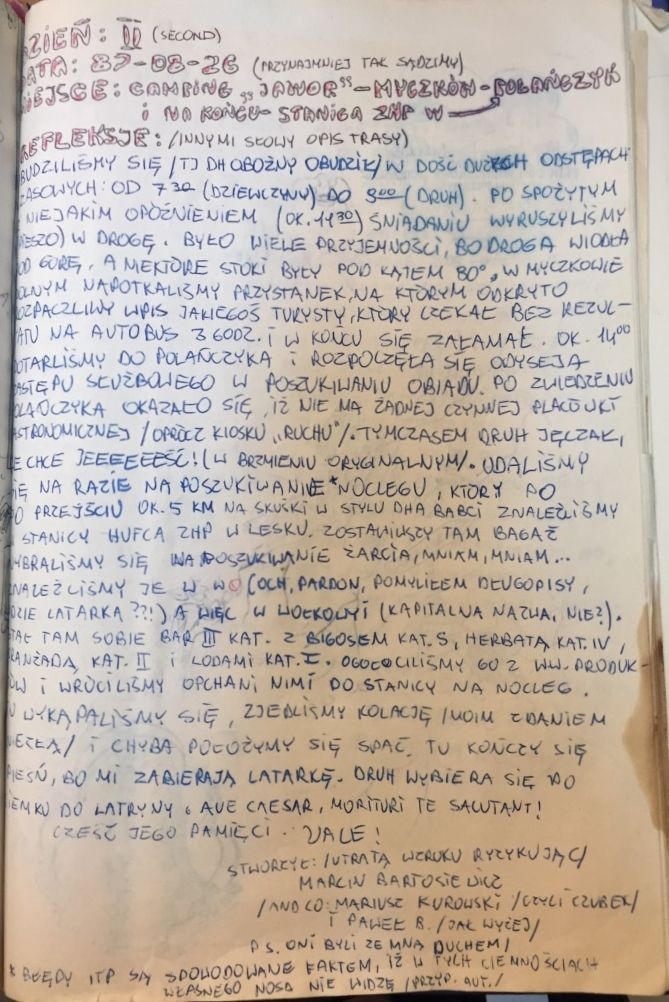 DZIEŃ: II (SECOND)
DATA: 87-08-26 (PRZYNAJMNIEJ TAK SĄDZIMY)
MIEJSCE: CAMPING „JAWOR” - MYCZKÓW - POLAŃCZYK
I NA KOŃCU - STANICA ZHP W
REFLEKSJE: /INNYMI SŁOWY OPIS TRASY)
OBUDZILIŚMY SIĘ /TJ DH OBOŹNY OBUDZIŁ/ W DOŚĆ DUŻYCH ODSTĘPACH
CZASOWYCH: OD 7 30 (DZIEWCZYNY) DO 9 00 (DRUH). PO SPOŻYTYM
Z NIEJAKIM OPÓŹNIENIEM (OK. 11 30) ŚNIADANIU WYRUSZYLIŚMY
(PIESZO) W DROGĘ. BYŁO WIELE PRZYJEMNOŚCI, BO DROGA WIODŁA
POD GÓRĘ, A NIEKTÓRE STOKI BYŁY POD KĄTEM 80°. W MYCZKOWIE
DOLNYM NAPOTKALIŚMY PRZYSTANEK, NA KTÓRYM ODKRYTO
ROZPACZLIWY WPIS JAKIEGOŚ TURYSTY, KTÓRY CZEKAŁ BEZ REZUL-
TATU NA AUTOBUS 3 GODZ. I W KOŃCU SIĘ ZAŁAMAŁ. OK. 14 00
DOTARLIŚMY DO POLAŃCZYKA I ROZPOCZĘŁA SIĘ ODYSEJA
ZASTĘPU SŁUŻBOWEGO W POSZUKIWANIU OBIADU. PO ZWIEDZENIU
POLAŃCZYKA OKAZAŁO SIĘ, IŻ NIE MA ŻADNEJ CZYNNEJ PLACÓWKI
GASTRONOMICZNEJ /OPRÓCZ KIOSKU „RUCHU”/. TYMCZASEM DRUH JĘCZAŁ,
ŻE CHCE JEEEEEEŚĆ! (W BRZMIENIU ORYGINALNYM/. UDALIŚMY
SIĘ NA RAZIE NA POSZUKIWANIE *NOCLEGU, KTÓRY PO
PO PRZEJŚCIU OK. 5 KM NA SKUŚKI W STYLU DHA BABCI ZNALEŹLIŚMY
W STANICY HUFCA ZHP W LESKU. ZOSTAWIWSZY TAM BAGAŻ
WYBRALIŚMY SIĘ NA POSZUKIWANIE ŻARCIA, MNIAM, MNIAM...
ZNALEŹLIŚMY JE W WO (OCH, PARDON, POMYLIŁEM DŁUGOPISY,
GDZIE LATARKA ??!) A WIĘC W WOŁKOWYI (KAPITALNA NAZWA, NIE?).
STAŁ TAM SOBIE BAR III KAT. Z BIGOSEM KAT. S, HERBATĄ KAT. IV,
ORANŻADĄ KAT. II I LODAMI KAT. I. OGOŁOCILIŚMY GO Z WW. PRODUK-
TÓW I WRÓCILIŚMY OPCHANI NIMI DO STANICY NA NOCLEG.
TU WYKĄPALIŚMY SIĘ, ZJEDLIŚMY KOLACJĘ /MOIM ZDANIEM
I CHYBA POŁOŻYMY SIĘ SPAĆ. TU KOŃCZY SIĘ
PIEŚŃ, BO MI ZABIERAJĄ LATARKĘ. DRUH WYBIERA SIĘ PO
CIEMKU DO LATRYNY. AVE CAESAR, MORITURI TE SALUTANT!
CZEŚĆ JEGO PAMIĘCI. VALE!
STWORZYŁ: /UTRATĄ WZROKU RYZYKUJĄC/
MARCIN BARTOSIEWICZ
/AND CO: MARIUSZ KUROWSKI /CZYLI CZUBEK/
I PAWEŁ B. /JAK WYŻEJ/
P.S. ONI BYLI ZE MNĄ DUCHEM/
* BŁĘDY ITP SĄ SPOWODOWANE FAKTEM, IŻ W TYCH CIEMNOŚCIACH
WŁASNEGO NOSA NIE WIDZĘ /PRZYP. AUT./